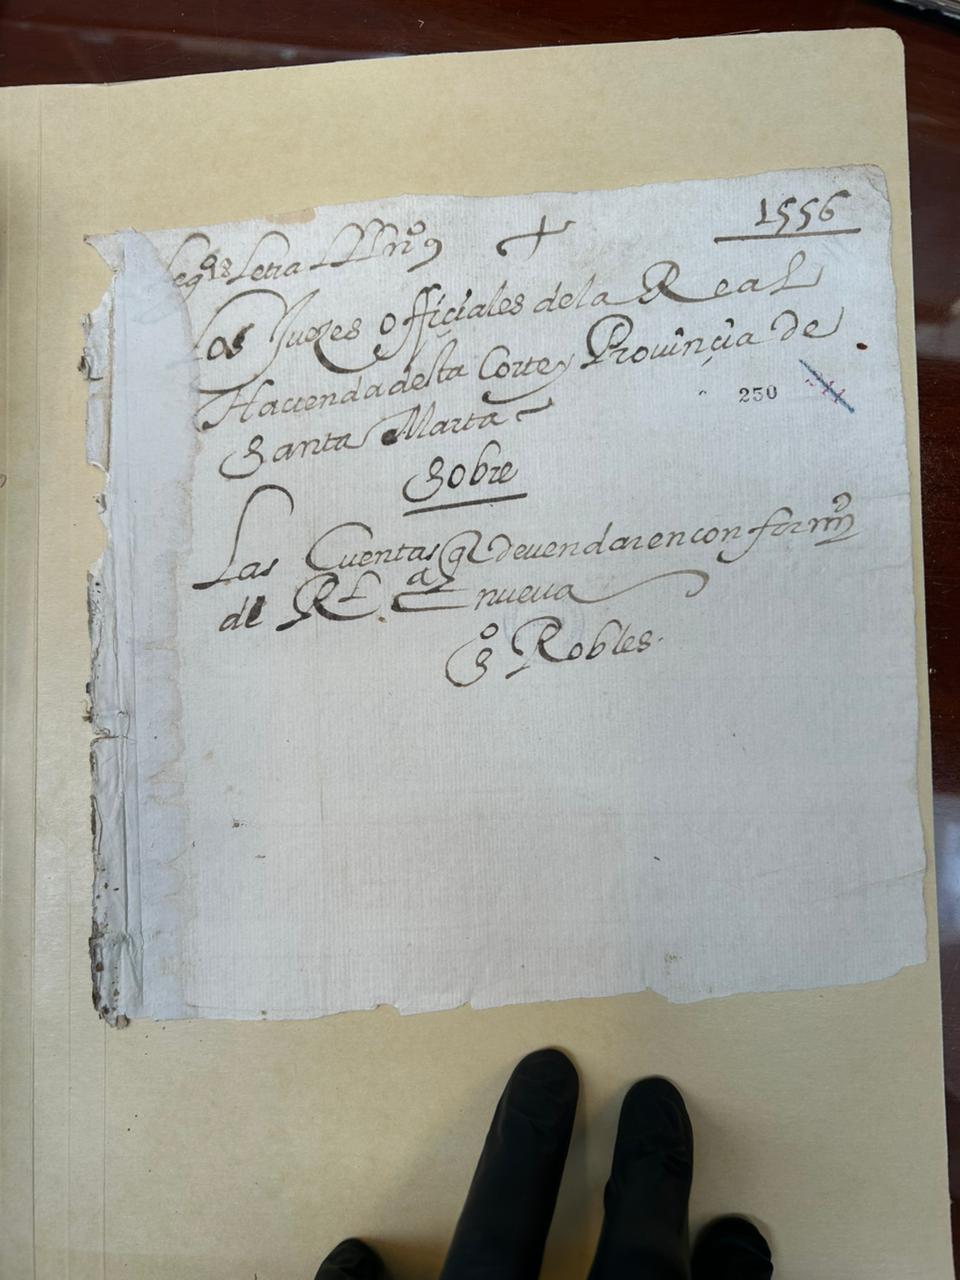 1556
Leg.º 18 Letra LL nº 9
Los Juezes officiales de la Real
Hacienda desta Corte y Provinçia de
250
Santa Marta
Sobre
Las Cuentas q devendar en conformd
de Rl nueva
Sº Robles.